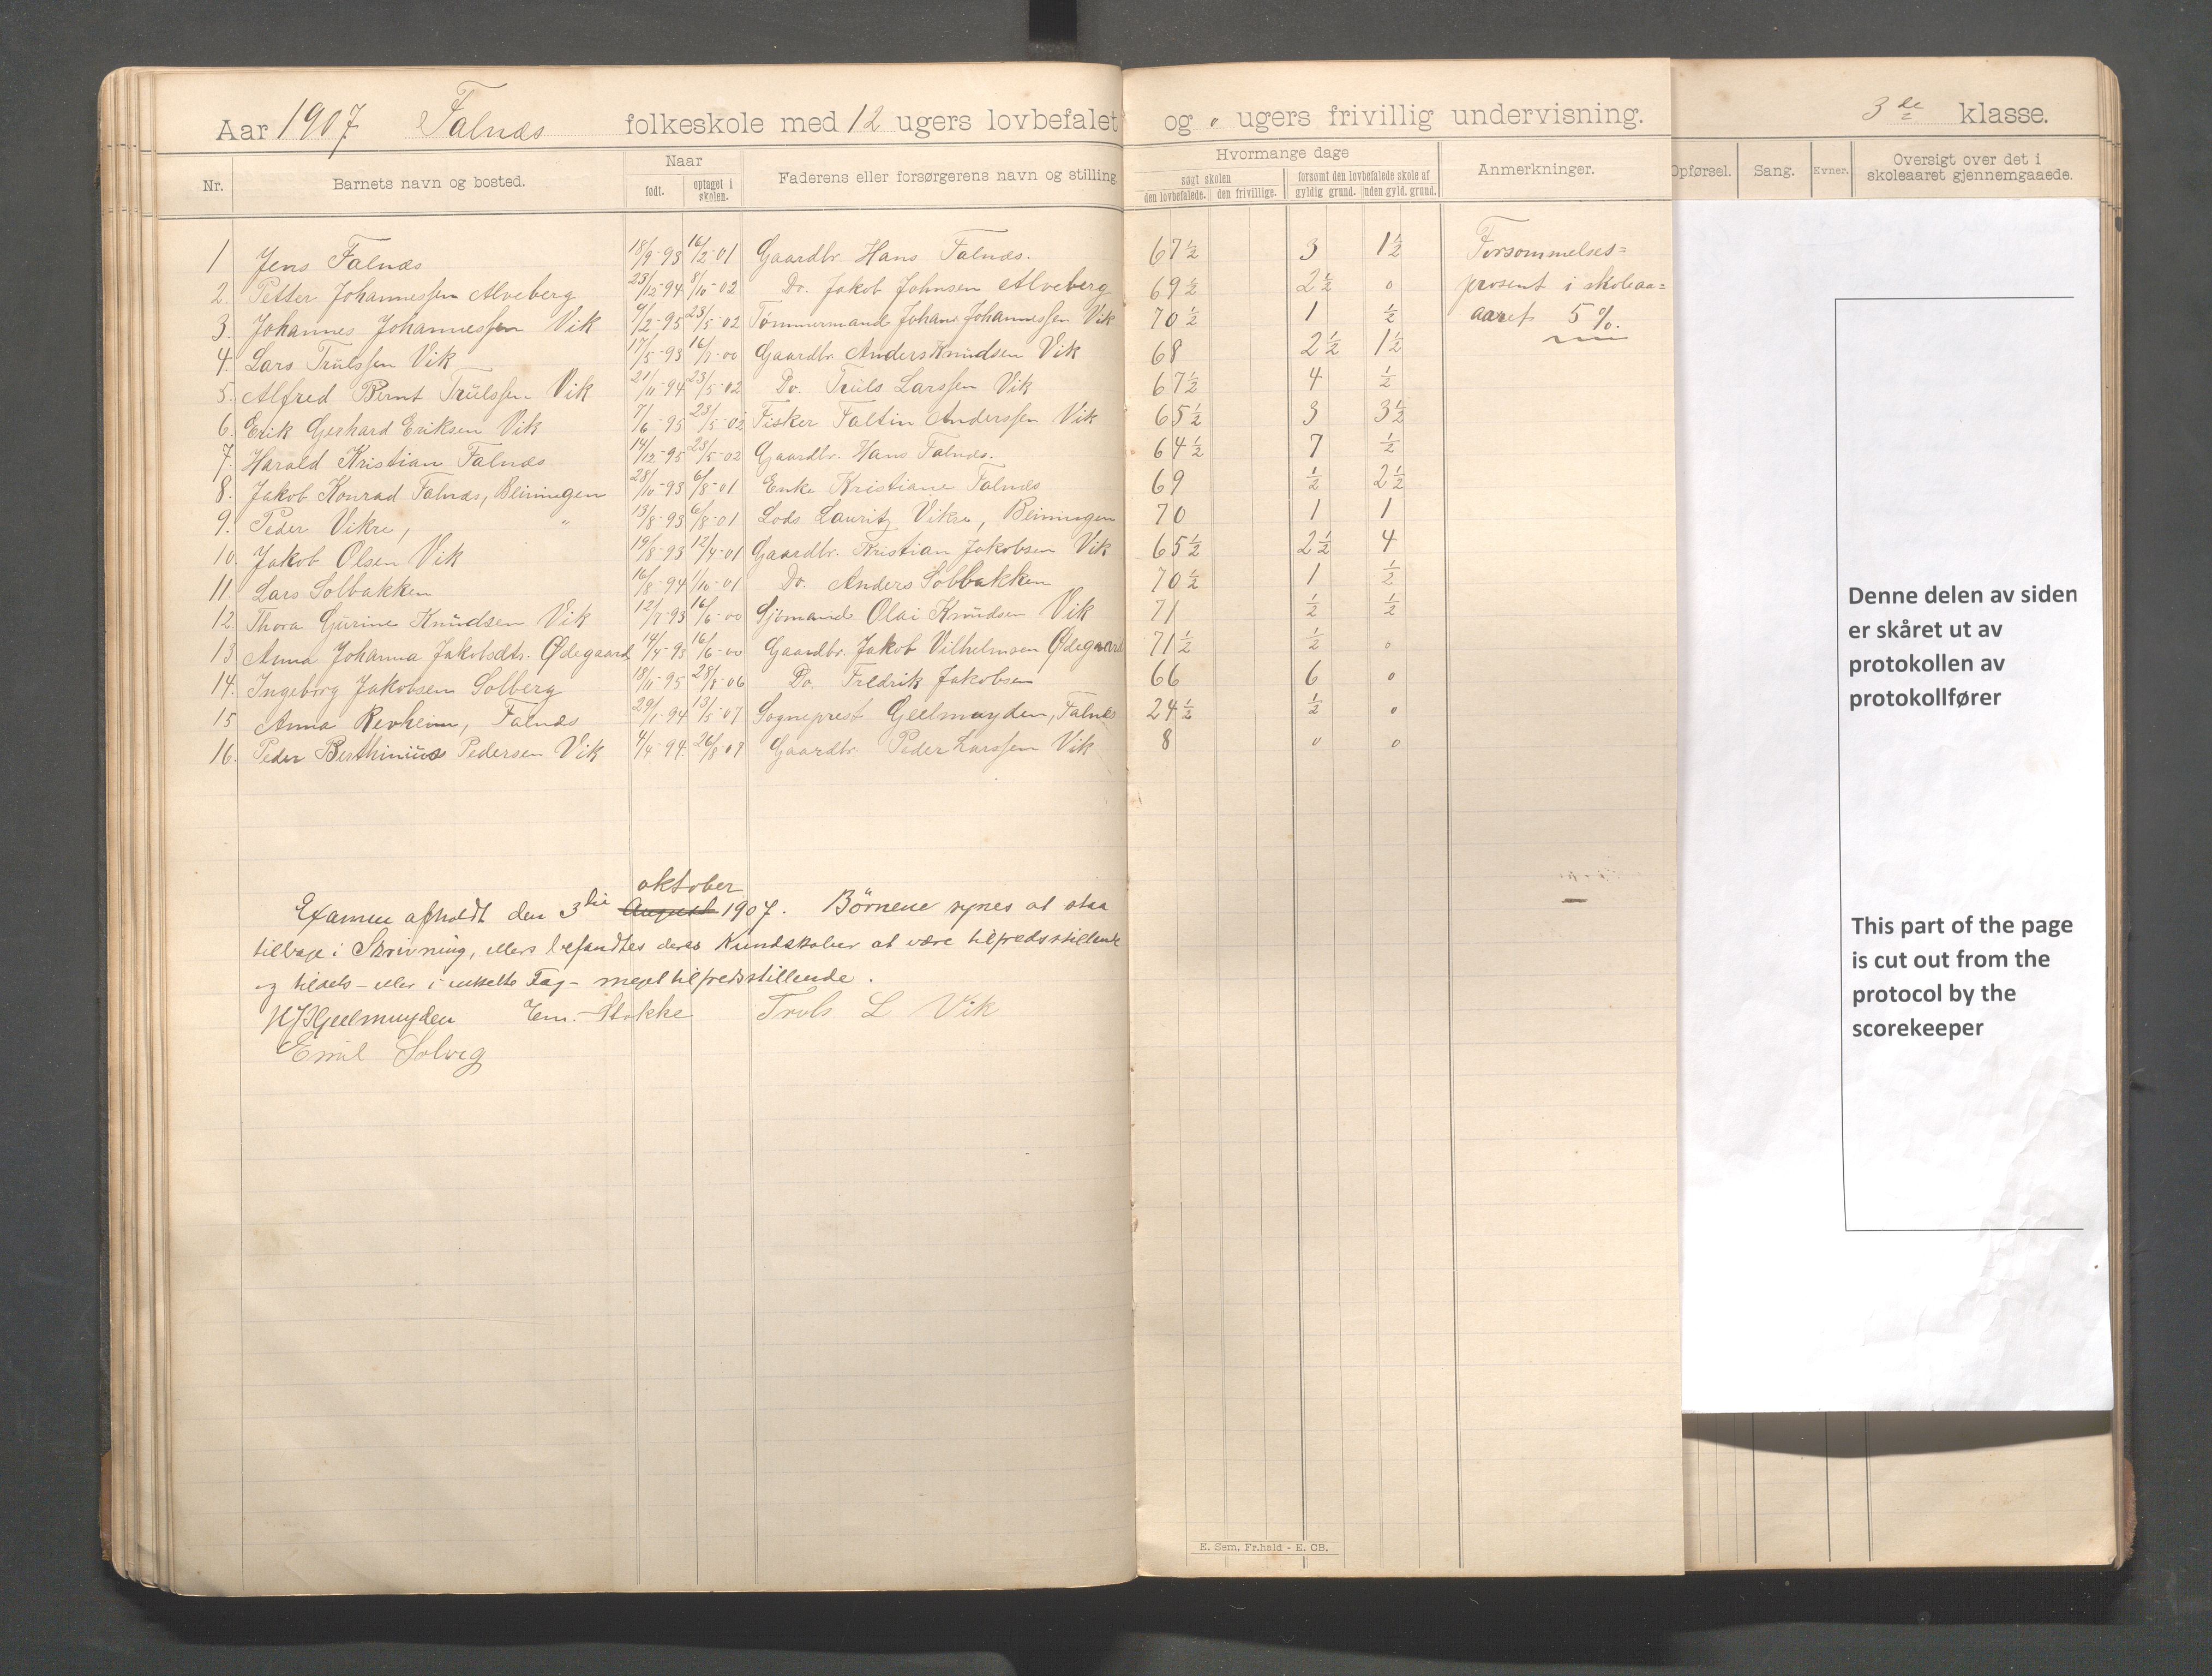 Aar 1907 Falnæs folkeskole med 12 ugers lovbefalet og 0 ugers frivillig undervisning. 3de klasse.
Nr. Barnets navn og bosted. Naar født. optaget i skolen. Faderens eller forsørgerens navn og stilling Hvormange dage søgt skolen den lovbefalede. den frivillige. forsømt den lovbefalede skole af gyldig grund. uden gyld. grund. Anmerkninger. Opførsel. Sang. Evner. Oversigt over det i skoleaaret gjennemgaaede.
1 Jens Falnæs 18/9-93 16/2-01 Gaardbr. Hans Falnæs. 67½ 3 1½ Forsømmelses=
2. Petter Johannessen Alveberg 23/12-94 8/10-02 Do. Jakob Johnsen Alveberg 69½ 2½ 0 prosent i skoleaa=
3. Johannes Johannessen Vik 9/2-95 23/5-02 Tømmermand Johans Johannessen Vik 70½ 1 ½ aaret 5%.
4. Lars Trulssen Vik 17/5-93 16/8-00 Gaardbr. Anders Knudsen Vik 68 2½ 1½
5. Alfred Bernt Trulssen Vik 21/11-94 23/5-02 Do. Truls Larssen Vik 67½ 4 ½
6. Erik Gerhard Eriksen Vik 7/6-95 23/5-02 Fisker Faltin Anderssen Vik 65½ 3 3½
7. Harald Kristian Falnæs 14/12-95 23/5-02 Gaardbr. Hans Falnæs. 64½ 7 ½
8. Jakob Konrad Falnæs, Beiningen 28/10-93 6/8-01 Enke Kristiane Falnæs 69 ½ 2½
9. Peder Vikre, " 13/8-93 6/8-01 Lods Lauritz Vikre, Beiningen 70 1 1
10. Jakob Olsen Vik 19/8-93 12/4-01 Gaardbr. Kristian Jakobsen Vik 65½ 2½ 4
11. Lars Solbakken 16/8-94 1/10-01 Do. Anders Solbakken 70½ 1 ½
12. Thora Gurine Knudsen Vik 12/7-93 16/6-00 Sjømand Olai Knudsen Vik 71 ½ ½
13 Anna Johanna Jakobsdtr. Ødegaard 14/4-93 16/6-00 Gaardbr. Jakob Vilhelmsen Ødegaard 71½ ½ 0
14. Ingeborg Jakobsen Solberg 18/11-95 28/8-06 Do. Fredrik Jakobsen 66 6 0
15 Anna Revheim, Falnæs 29/1-94 13/5-07 Sogneprest Geelmuyden, Falnes 24½ ½ 0
16. Peder Berthinius Pedersen Vik 4/4-94. 26/8-07 Gaardbr. Peder Larssen Vik 8 0 0
oktober
Examen afholdt den 3die August 1907. Börnene synes at staa
tilbage i Skrivning, ellers befandtes deres Kundskaber at være tilfredsstillende
og tildels – eller i enkelte Fag – meget tilfredsstillende.
Geelmuyden Em. Stokke Truls L Vik
Emil Solveg
E. Sem, Fr.hald - E. CB.
Denne delen av siden
er skåret ut av
protokollen av
protokollfører
This part of the page
is cut out from the
protocol by the
scorekeeper